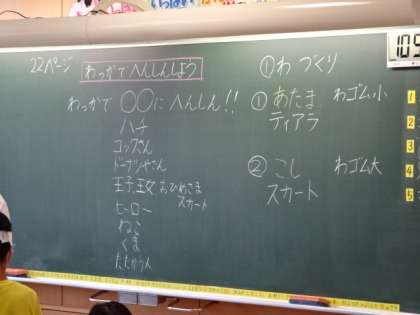 22ページ
わっかでへんしんしよう
わっかで ○○に へんしん!!
ハチ
コックさん
ドーナツやさん
王子 王女 おひめさま
スカート
ヒーロー
ねこ
くま
たたかう人
①わ づくり
①あたま わゴム小
ティアラ
②こし わゴム大
スカート
1
2
3
4
5